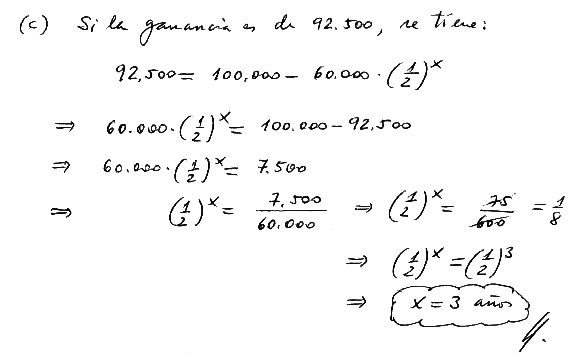 (c) Si la ganancia es de 92.500, se tiene:
92,500 = 100,000 - 60.000 · (1/2)^x
⇒ 60.000 · (1/2)^x = 100.000 - 92,500
⇒ 60.000 · (1/2)^x = 7.500
⇒ (1/2)^x = 7.500/60.000 ⇒ (1/2)^x = 75/600 = 1/8
⇒ (1/2)^x = (1/2)^3
⇒ x = 3 años